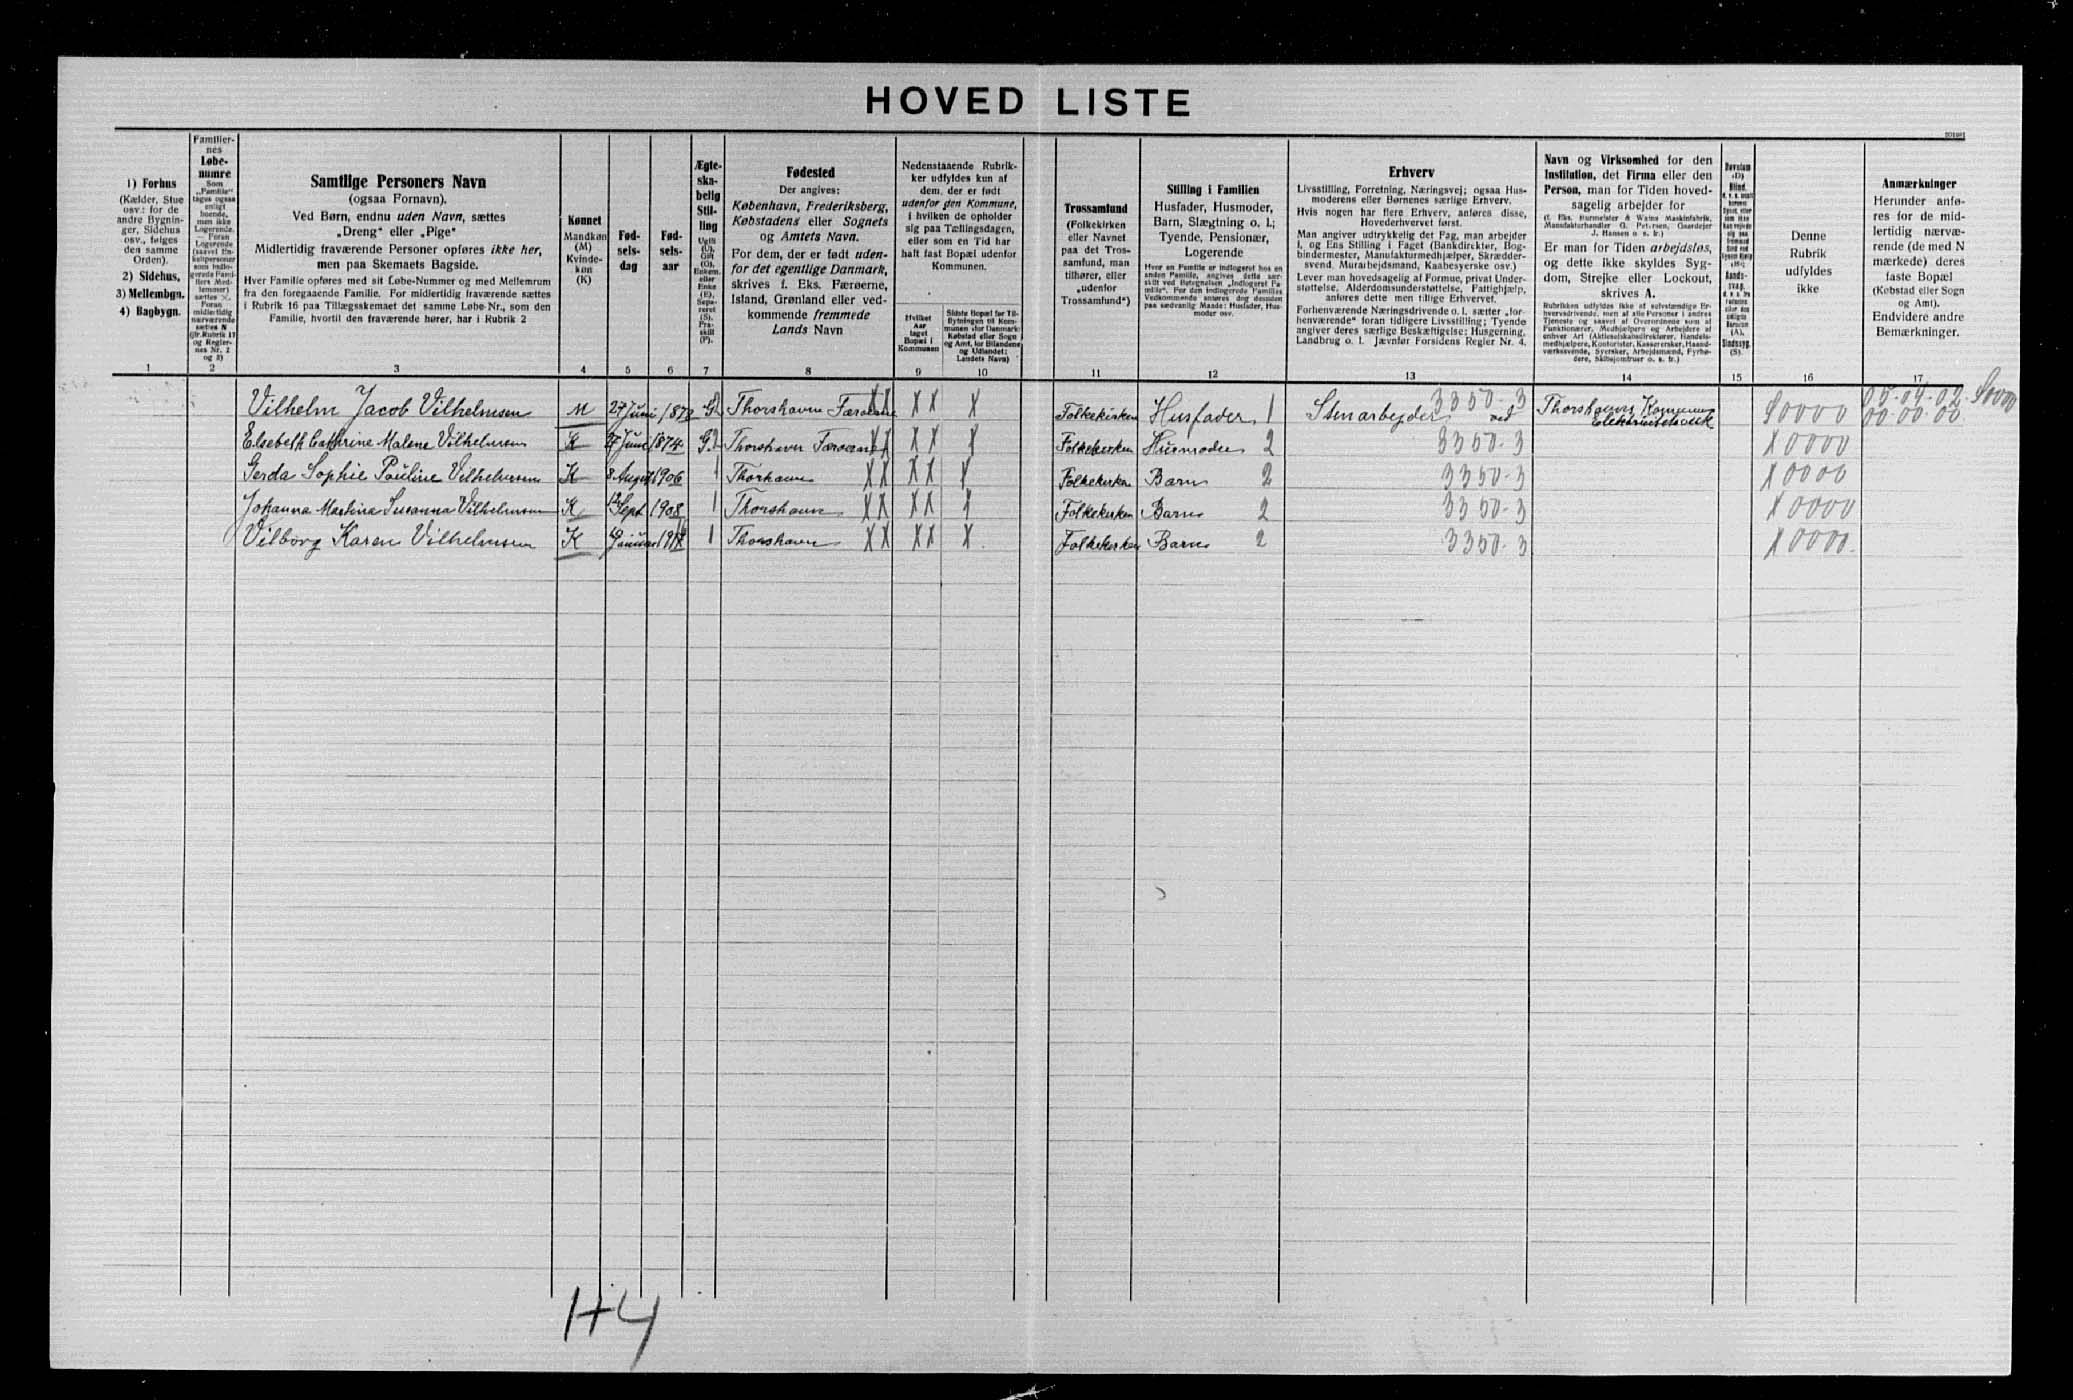 HOVED LISTE
1) Forhus
(Kælder, Stue
osv.: for de
andre Bygnin-
ger, Sidehus
osv., følges
den samme
Orden).
2) Sidehus,
3) Mellembgn.
4) Bagbygn.
Familier-
nes
Løbe-
numre
Samtlige Personers Navn
(ogsaa Fornavn).
Ved Børn, endnu uden Navn, sættes
„Dreng“ eller „Pige“
Midlertidig fraværende Personer opføres ikke her,
men paa Skemaets Bagside.
Hver Familie opføres med sit Løbe-Nummer og med Mellemrum
fra den foregaaende Familie. For midlertidig fraværende sættes
i Rubrik 16 paa Tillægsskemaet det samme Løbe-Nr., som den
Familie, hvortil den fraværende hører, har i Rubrik 2
Kønnet
Mandkøn
(M)
Kvinde-
køn
(K)
Fød-
sels-
dag
Fød-
sels-
aar
Ægte-
ska-
belig
Stil-
ling
Fødested
Der angives:
København, Frederiksberg,
Købstadens eller Sognets
og Amtets Navn.
For dem, der er født uden-
for det egentlige Danmark,
skrives f. Eks. Færøerne,
Island, Grønland eller ved-
kommende fremmede
Lands Navn
Nedenstaaende Rubrik-
ker udfyldes kun af
dem, der er født
udenfor den Kommune,
i hvilken de opholder
sig paa Tællingsdagen,
eller som en Tid har
haft fast Bopæl udenfor
Kommunen.
Hvilket
Aar
taget
Bopæl i
Kommunen
Trossamfund
(Folkekirken
eller Navnet
paa det Tros-
samfund, man
tilhører, eller
„udenfor
Trossamfund“)
Stilling i Familien
Husfader, Husmoder,
Barn, Slægtning o. l.;
Tyende, Pensionær,
Logerende
Erhverv
Livsstilling, Forretning, Næringsvej; ogsaa Hus-
moderens eller Børnenes særlige Erhverv.
Hvis nogen har flere Erhverv, anføres disse,
Hovederhvervet først.
Man angiver udtrykkelig det Fag, man arbejder
i, og Ens Stilling i Faget (Bankdirektør, Bog-
bindermester, Manufakturmedhjælper, Skrædder-
svend, Murarbejdsmand, Kaabesyerske osv.)
Lever man hovedsagelig af Formue, privat Under-
støttelse, Alderdomsunderstøttelse, Fattighjælp,
anføres dette men tillige Erhvervet.
Forhenværende Næringsdrivende o. l. sætter „for-
henværende“ foran tidligere Livsstilling; Tyende
angiver deres særlige Beskæftigelse: Husgerning,
Landbrug o. l. Jævnfør Forsidens Regler Nr. 4.
Navn og Virksomhed for den
Institution, det Firma eller den
Person, man for Tiden hoved-
sagelig arbejder for
Er man for Tiden arbejdsløs,
og dette ikke skyldes Syg-
dom, Strejke eller Lockout,
skrives A.
Denne
Rubrik
udfyldes
ikke
Anmærkninger
Herunder anfø-
res for de mid-
lertidig nærvæ-
rende (de med N
mærkede) deres
faste Bopæl
(Købstad eller Sogn
og Amt).
Endvidere andre
Bemærkninger.
1 2 3 4 5 6 7 8 9 10 11 12 13 14 15 16 17
Vilhelm Jacob Vilhelmsen M 27 Juni 1872 G Thorshavn Færøerne XX XX X Folkekirken Husfader 1 Stenarbejder 3350-3 ved Thorshavns Kommunes Elektricitetsværk 80000 05-04-02 80000
00-00-00
Elsebeth Cathrine Malene Vilhelmsen K 27 Juni 1874 G Thorshavn Færøerne XX XX X Folkekirken Husmoder 2 3350-3 X0000
Gerda Sophie Pauline Vilhelmsen K 8 August 1906 1 Thorshavn XX XX X Folkekirken Barn 2 3350-3 X0000
Johanna Martina Susanna Vilhelmsen K 12 Sept 1908 1 Thorshavn XX XX X Folkekirken Barn 2 3350-3 X0000
Vilborg Karen Vilhelmsen K Januar 1 Thorshavn XX XX X Folkekirken Barn 2 3350-3 X0000
H4